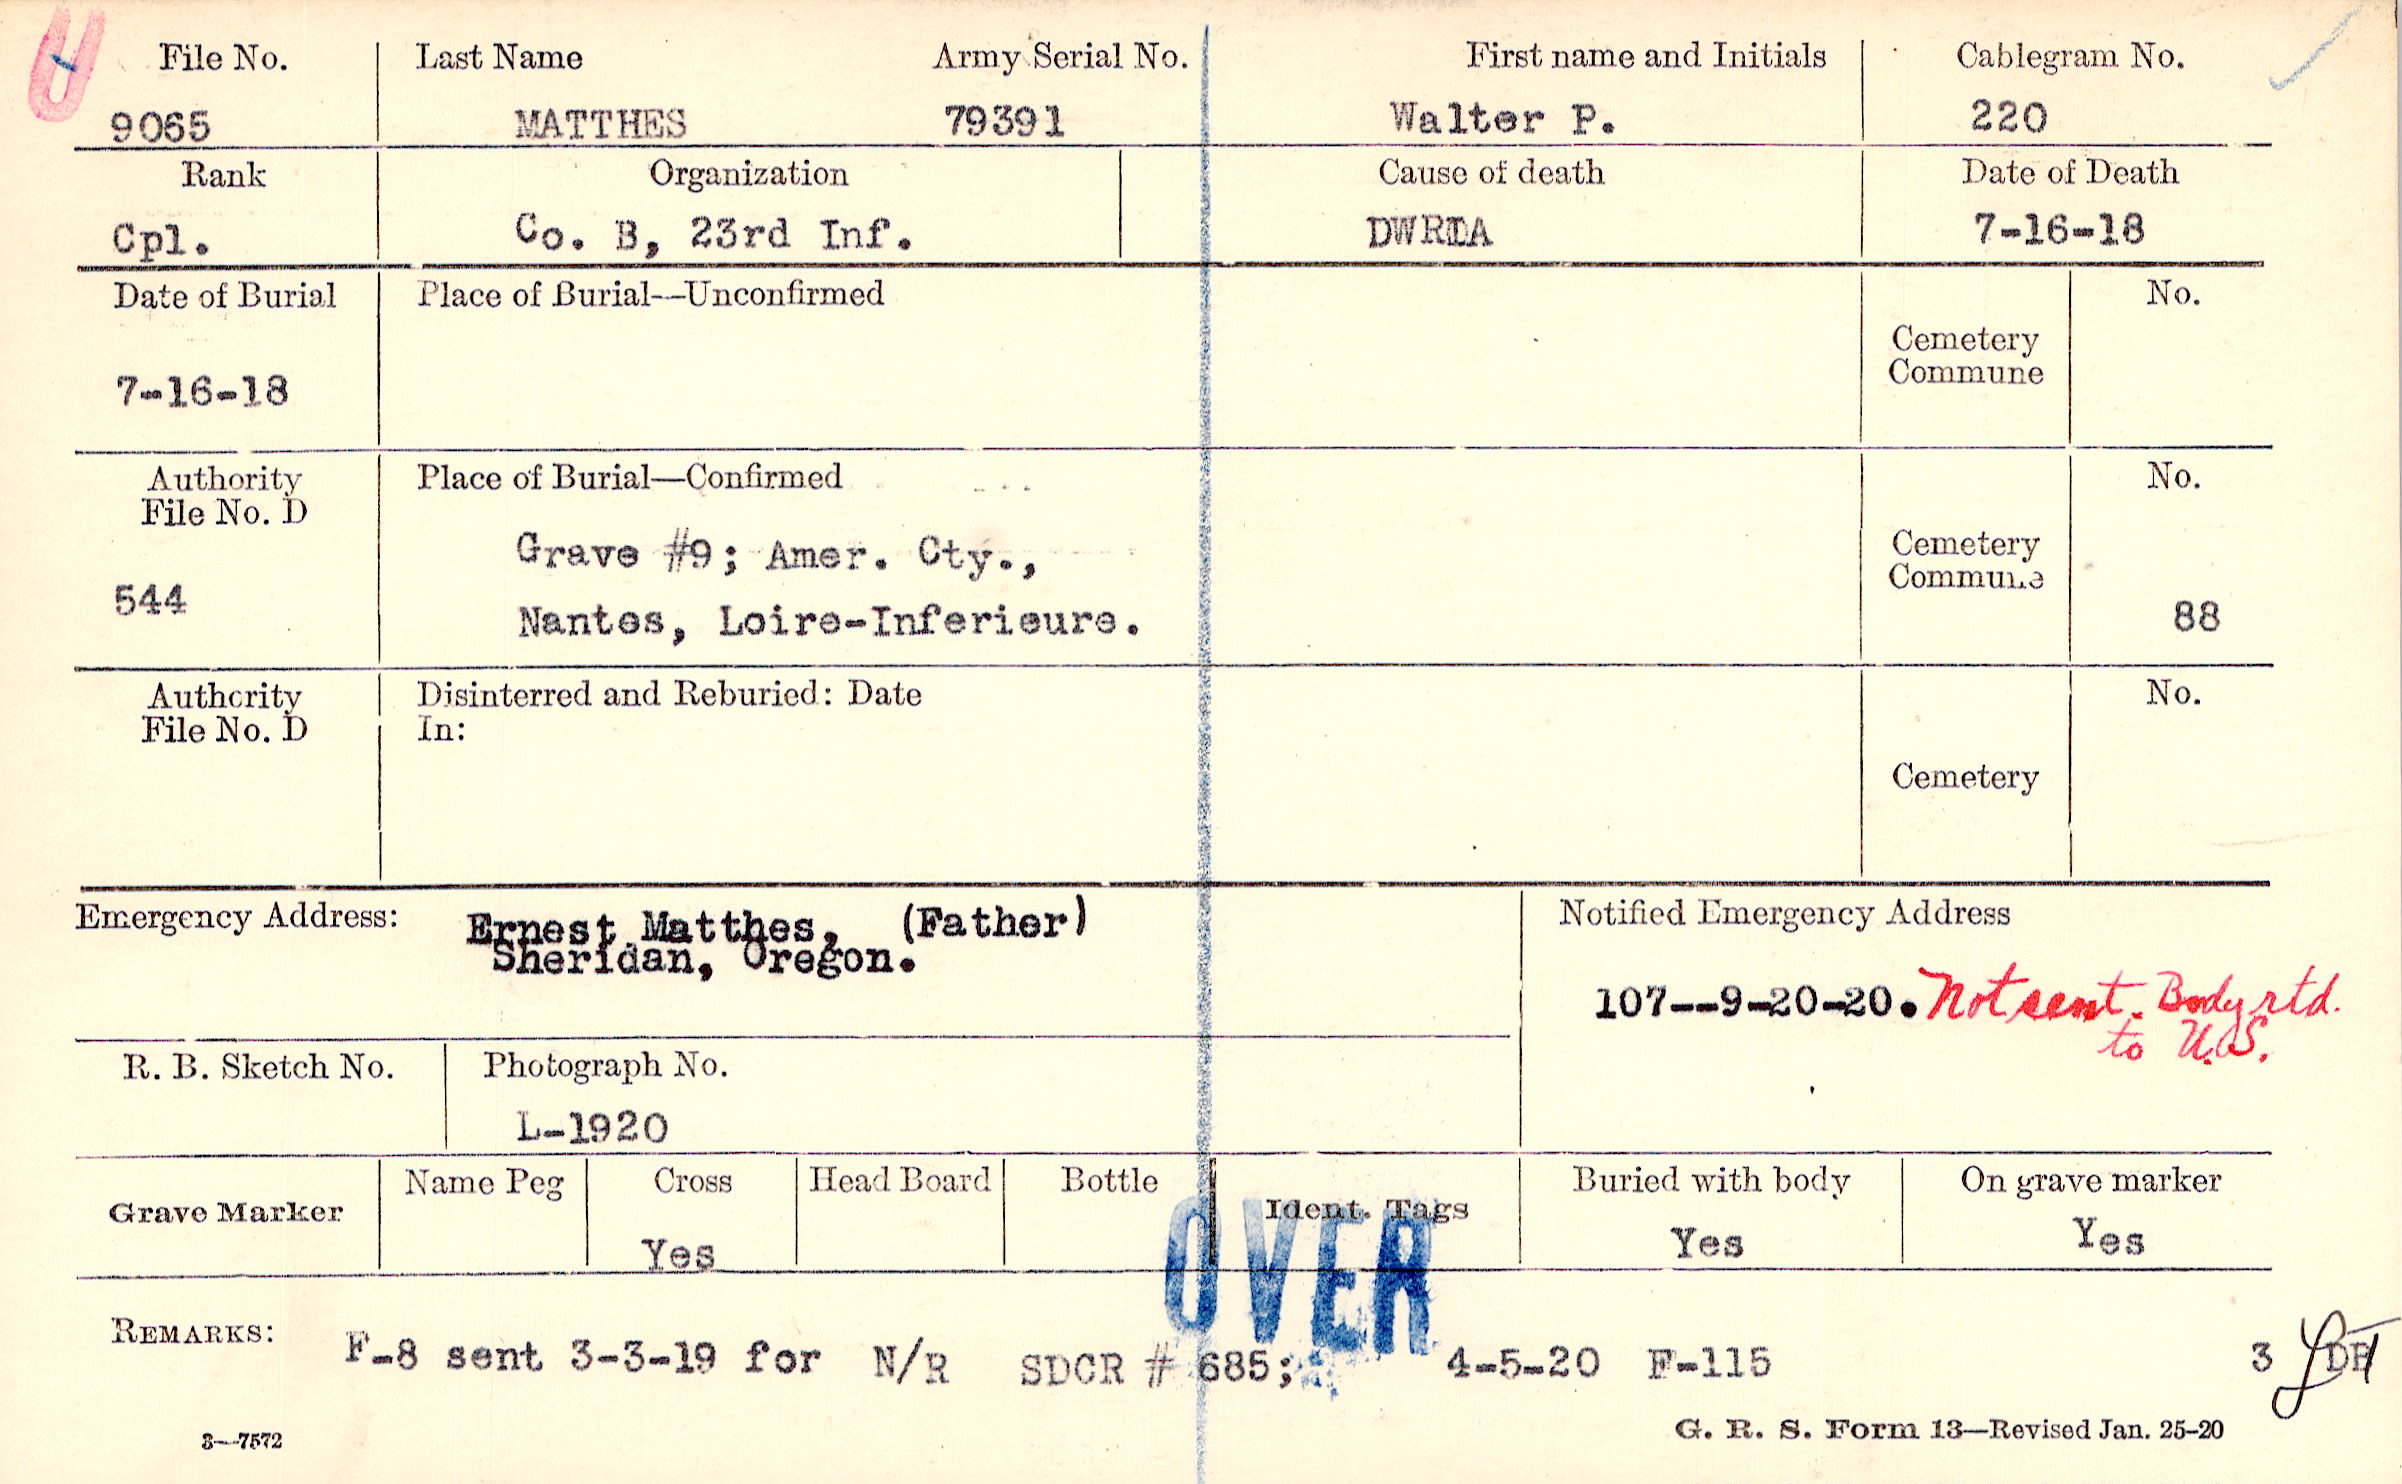 File No. Last Name Army Serial No. First name and Initials Cablegram No.
9065 MATTHES 79391 Walter P. 220
Rank Organization Cause of death Date of Death
Cpl. Co. B, 23rd Inf. DWRIA 7-16-18
Date of Burial Place of Burial—Unconfirmed No.
Cemetery
Commune
7-16-18
Authority Place of Burial—Confirmed No.
File No. D
Grave #9; Amer. Cty., Cemetery
Commune
544 Nantes, Loire-Inferieure. 88
Authority Disinterred and Reburied: Date No.
File No. D In:
Cemetery
Emergency Address: Ernest Matthes, (Father) Notified Emergency Address
Sheridan, Oregon.
107--9-20-20. Not sent. Body rtd.
to U.S.
R. B. Sketch No. Photograph No.
L-1920
Grave Marker Name Peg Cross Head Board Bottle Ident. Tags Buried with body On grave marker
Yes Yes Yes
OVER
REMARKS: F-8 sent 3-3-19 for N/R SDCR # 685; 4-5-20 F-115 3
3—7572 G. R. S. Form 13—Revised Jan. 25-20